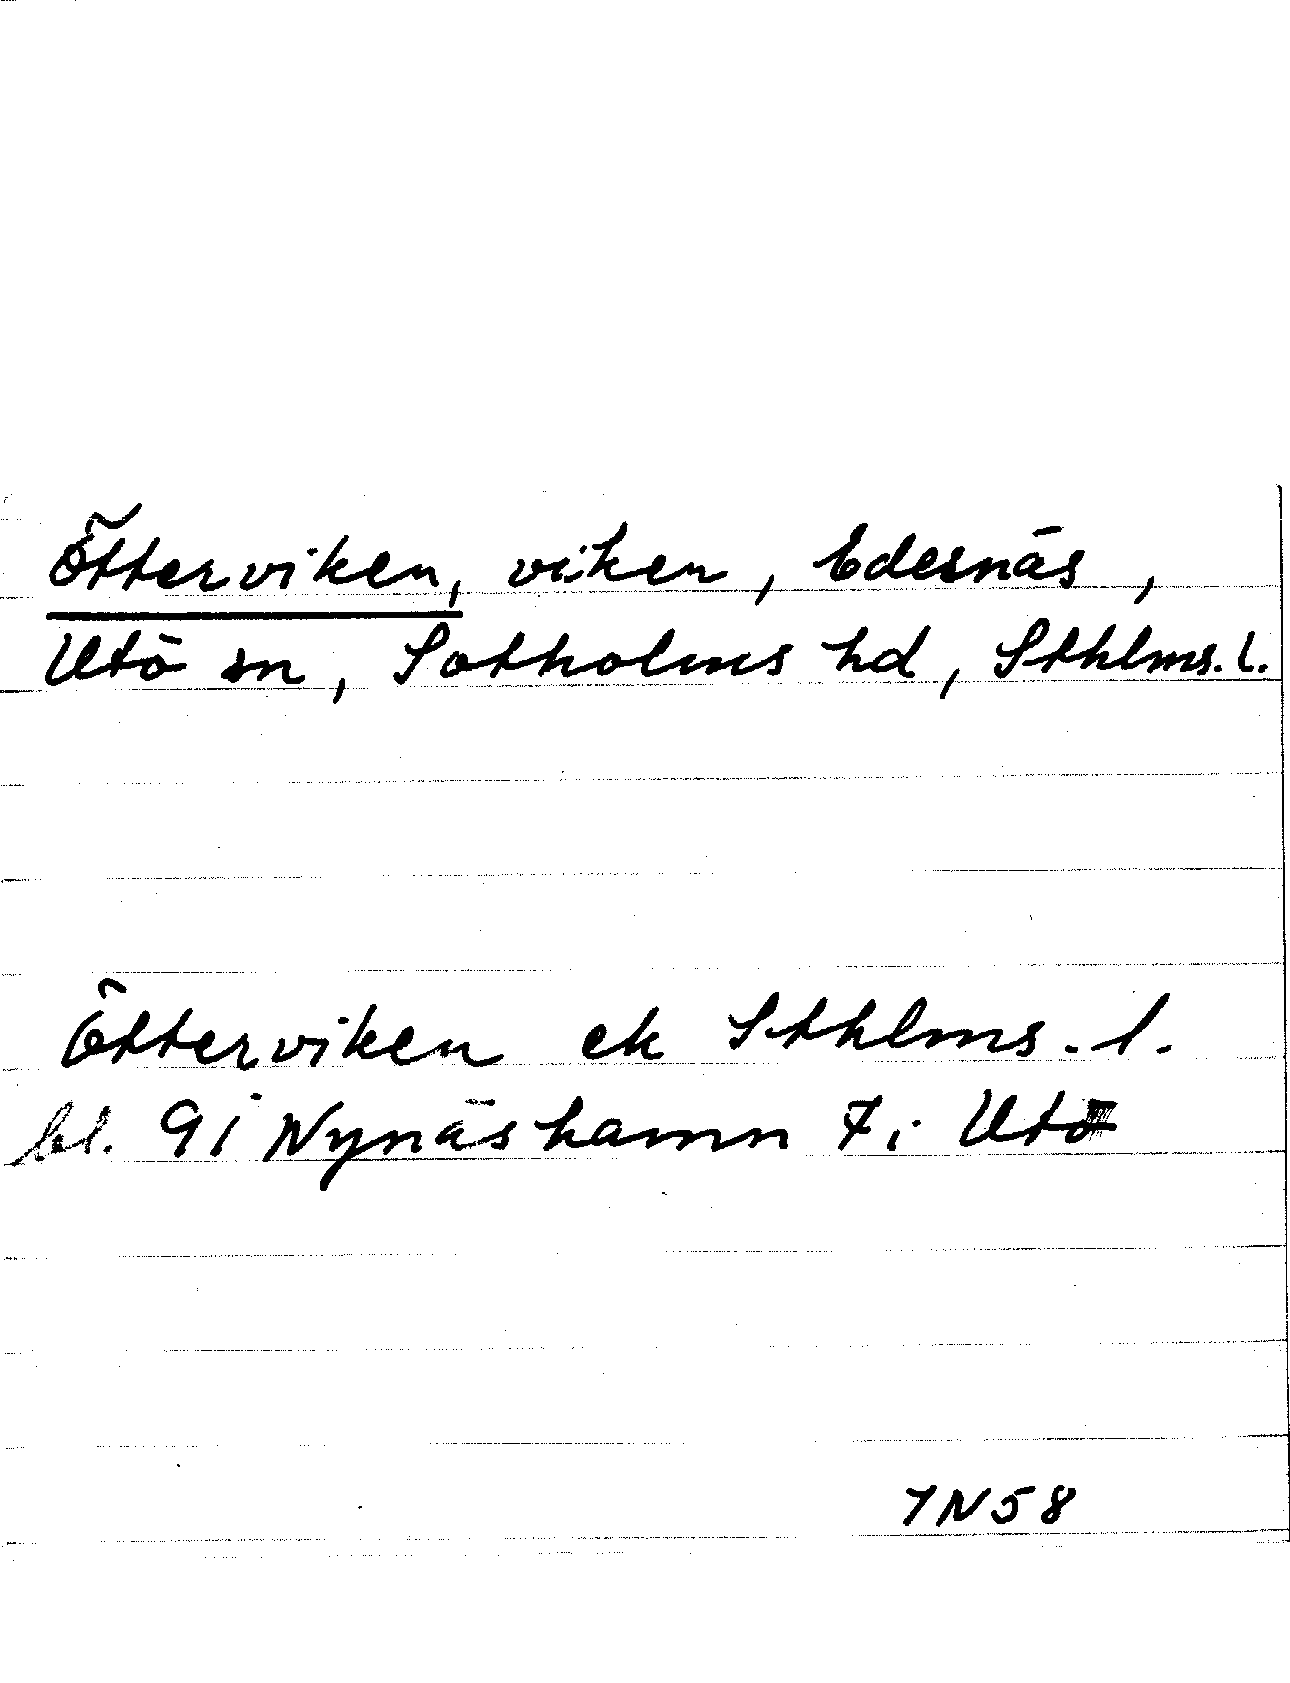 Ötterviken, viken, Edesnäs,
Utö sn, Sotholms hd, Sthlms. l.
Ötterviken ek Sthlms. l.
bl. 91 Nynäshamn 7i Utö
IN58